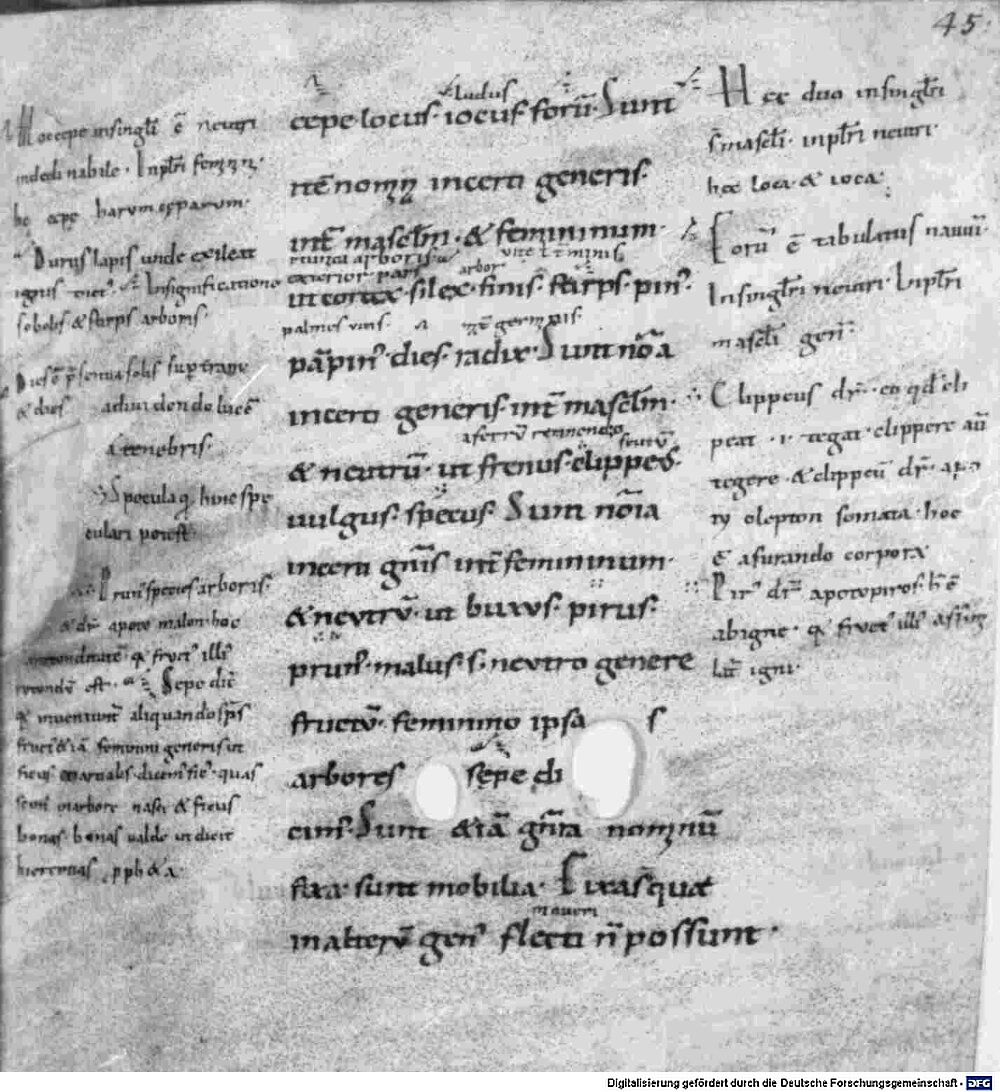 45.
Hoc cepe insinglri ē neutri
indeclinabile. Inplri
harum cęparum.
Durus lapis unde exileat
ignis Insignificatione
sobolis & stirps arboris.
& dies adiuidendo lucē
a tenebris.
Specula hinc spe
culari potest.
Prun' species arboris.
& dr̄ apoto malon. hoc
fruct' illi'
rotundus est. Sepe dic̄
inveniunt aliquando
fruct' &iā feminini generis ut
ficus quas
in arbore nasci & ficus
bonas. bonas valde ut dicit
hieremias pph&a.
ludus
cepe. locus. iocus. forū. Sunt
itē nom̄ incerti generis.
int̄ mascl̄m. & femininum.
arboris
exterior pars arbor
ut cortex. silex. finis. stirps. pin'.
palmes vitis
pāpin'. dies. radix. Sunt nōa
incerti generis. int̄ mascl̄m.
a ferrū retinendo
& neutrū. ut frenus. clippeus.
uulgus. specus. Sunt nōia
incerti gn̄is int̄ femininum.
& neutrū. ut buxus. pirus.
prun'. malus. s. neutro genere
fructū. feminino ipsa s
arbores sepe di
cim'. Sunt &iā gn̄ra nominū
fixa. sunt mobilia. Fixa s̄ quae
moueri
in alterū gen' flecti n̄ possunt.
Hec duo insinglri
s. mascl̄i. inplri neutri.
hec loca. & ioca.
Forū ē tabulatus nauiū.
Insinglri neutri. Inplri
mascl̄i gen̄.
Clippeus dr̄. eo qd̄ cli
peat .i. tegat. clippere aū
tegere. & clippeū dr̄. apo
ty clepton somata. hoc
ē a furando corpora
Pir' dr̄ apotopiros. h̄ ē
ab igne. fruct' illi'
igni.
Digitalisierung gefördert durch die Deutsche Forschungsgemeinschaft - DFG